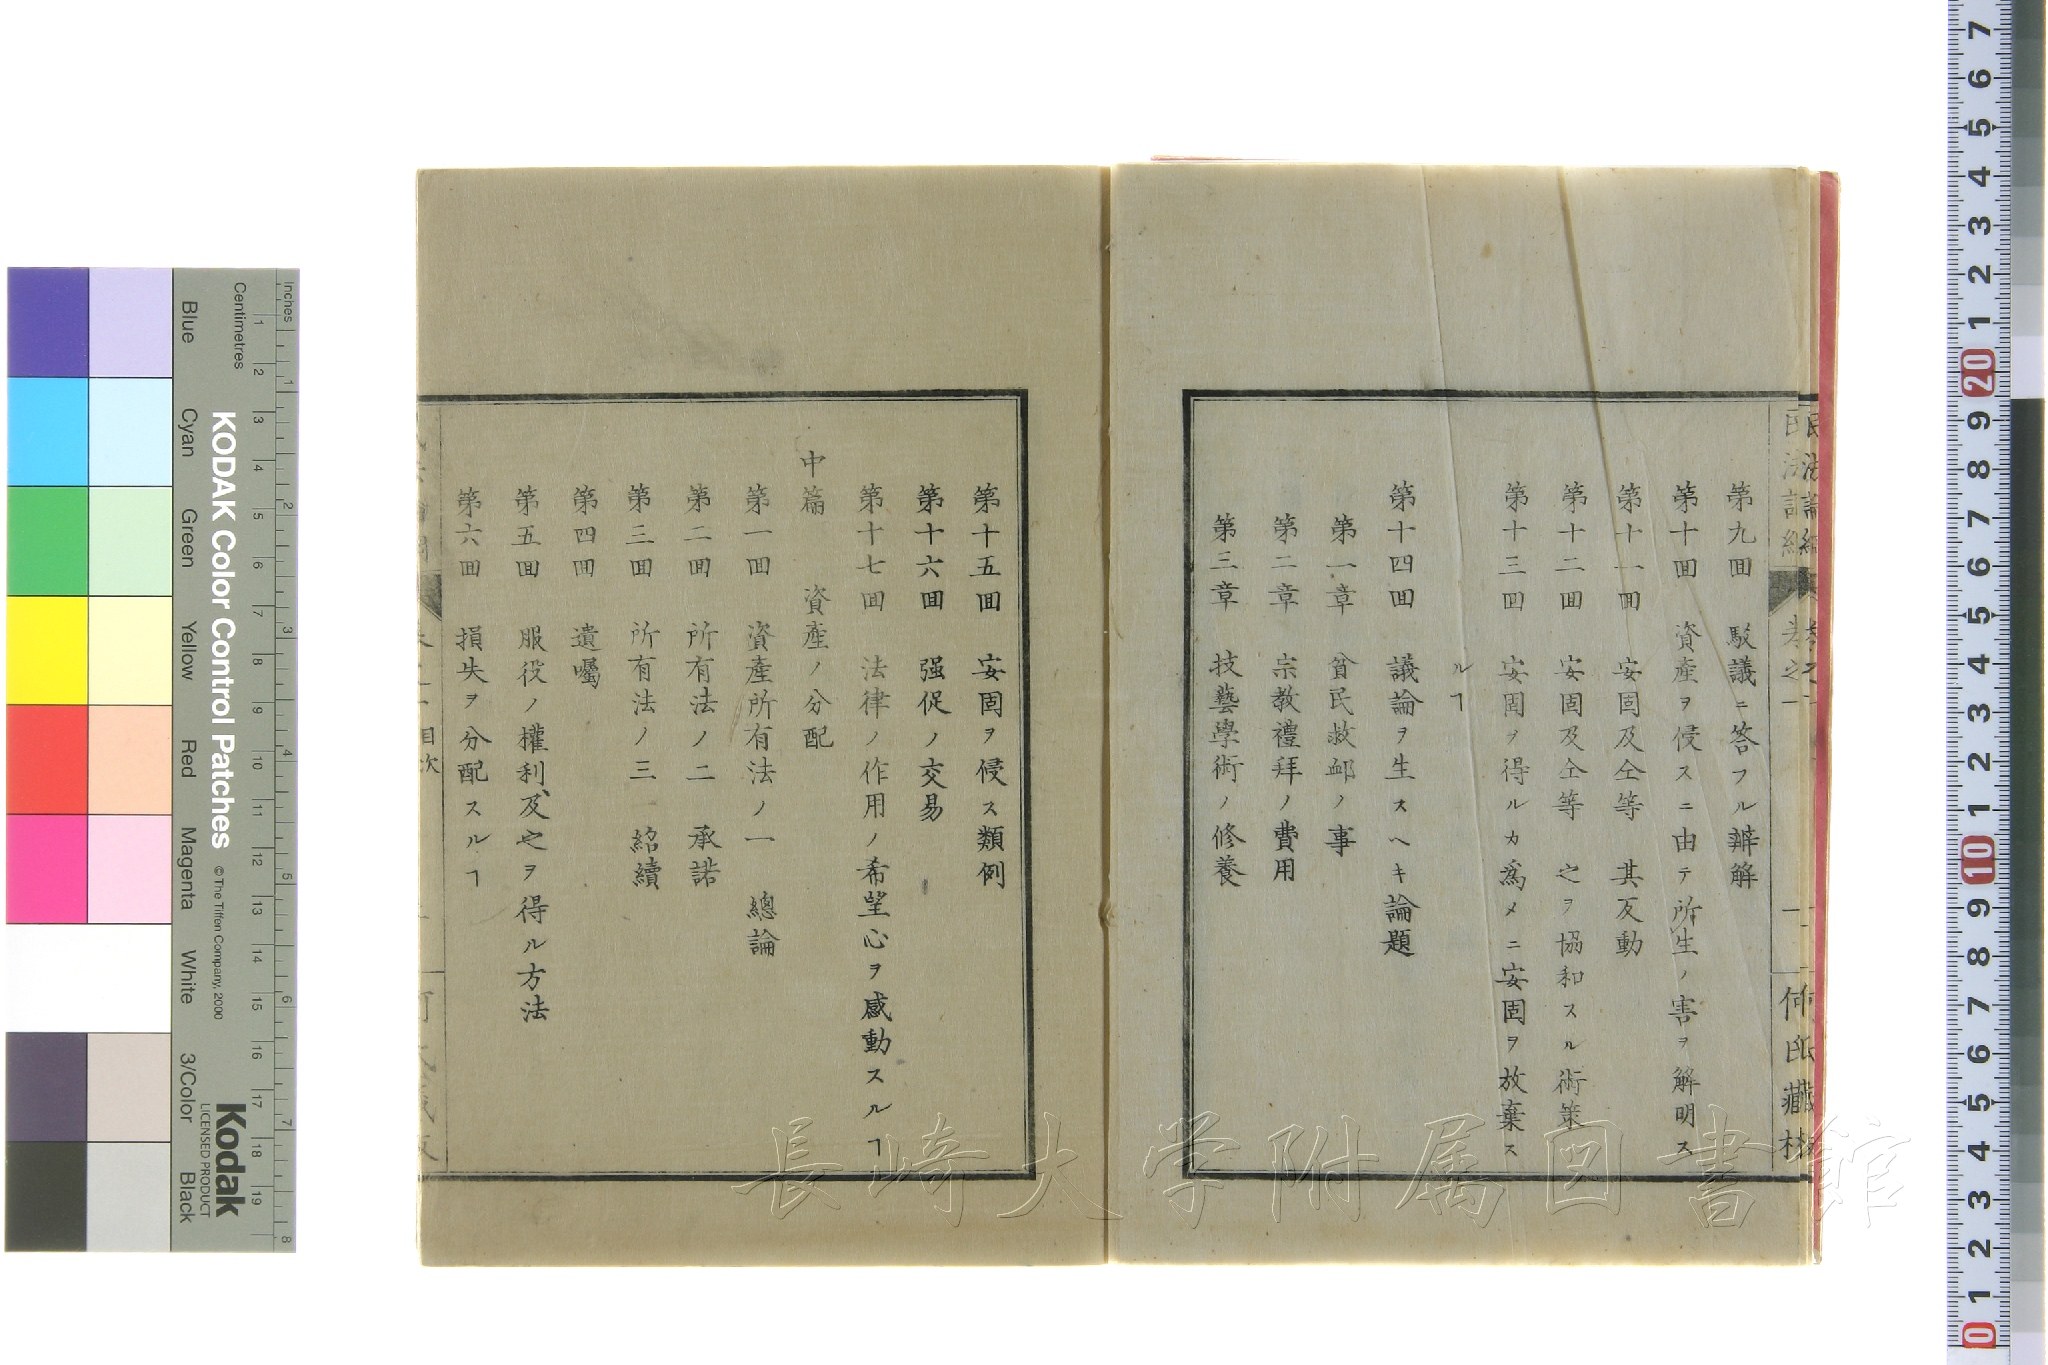 民法論綱 卷之一 何氏藏板
第九回 駁議ニ答フル辨解
第十回 資産ヲ侵スニ由テ所生ノ害ヲ解明ス
第十一回 安固及仝等 其反動
第十二回 安固及仝等 之ヲ協和スル術策
第十三回 安固ヲ得ルカ爲メニ安固ヲ放棄ス
ルヿ
第十四回 議論ヲ生スヘキ論題
第一章 貧民救䘏ノ事
第二章 宗教禮拜ノ費用
第三章 技藝學術ノ修養
第十五回 安固ヲ侵ス類例
第十六回 强促ノ交易
第十七回 法律ノ作用ノ希望心ヲ感動スルヿ
中篇 資産ノ分配
第一回 資産所有法ノ一 總論
第二回 所有法ノ二 承諾
第三回 所有法ノ三 紹續
第四回 遺囑
第五回 服役ノ權利及之ヲ得ル方法
第六回 損失ヲ分配スルヿ
目次
長崎大学附属図書館
Inches
Centimetres
1 2 3 4 5 6 7 8
1 2 3 4 5 6 7 8 9 10 11 12 13 14 15 16 17 18 19
KODAK Color Control Patches
© The Tiffen Company, 2000
Kodak
LICENSED PRODUCT
Blue
Cyan
Green
Yellow
Red
Magenta
White
3/Color
Black
7 6 5 4 3 2 1 20 9 8 7 6 5 4 3 2 1 10 9 8 7 6 5 4 3 2 1 0